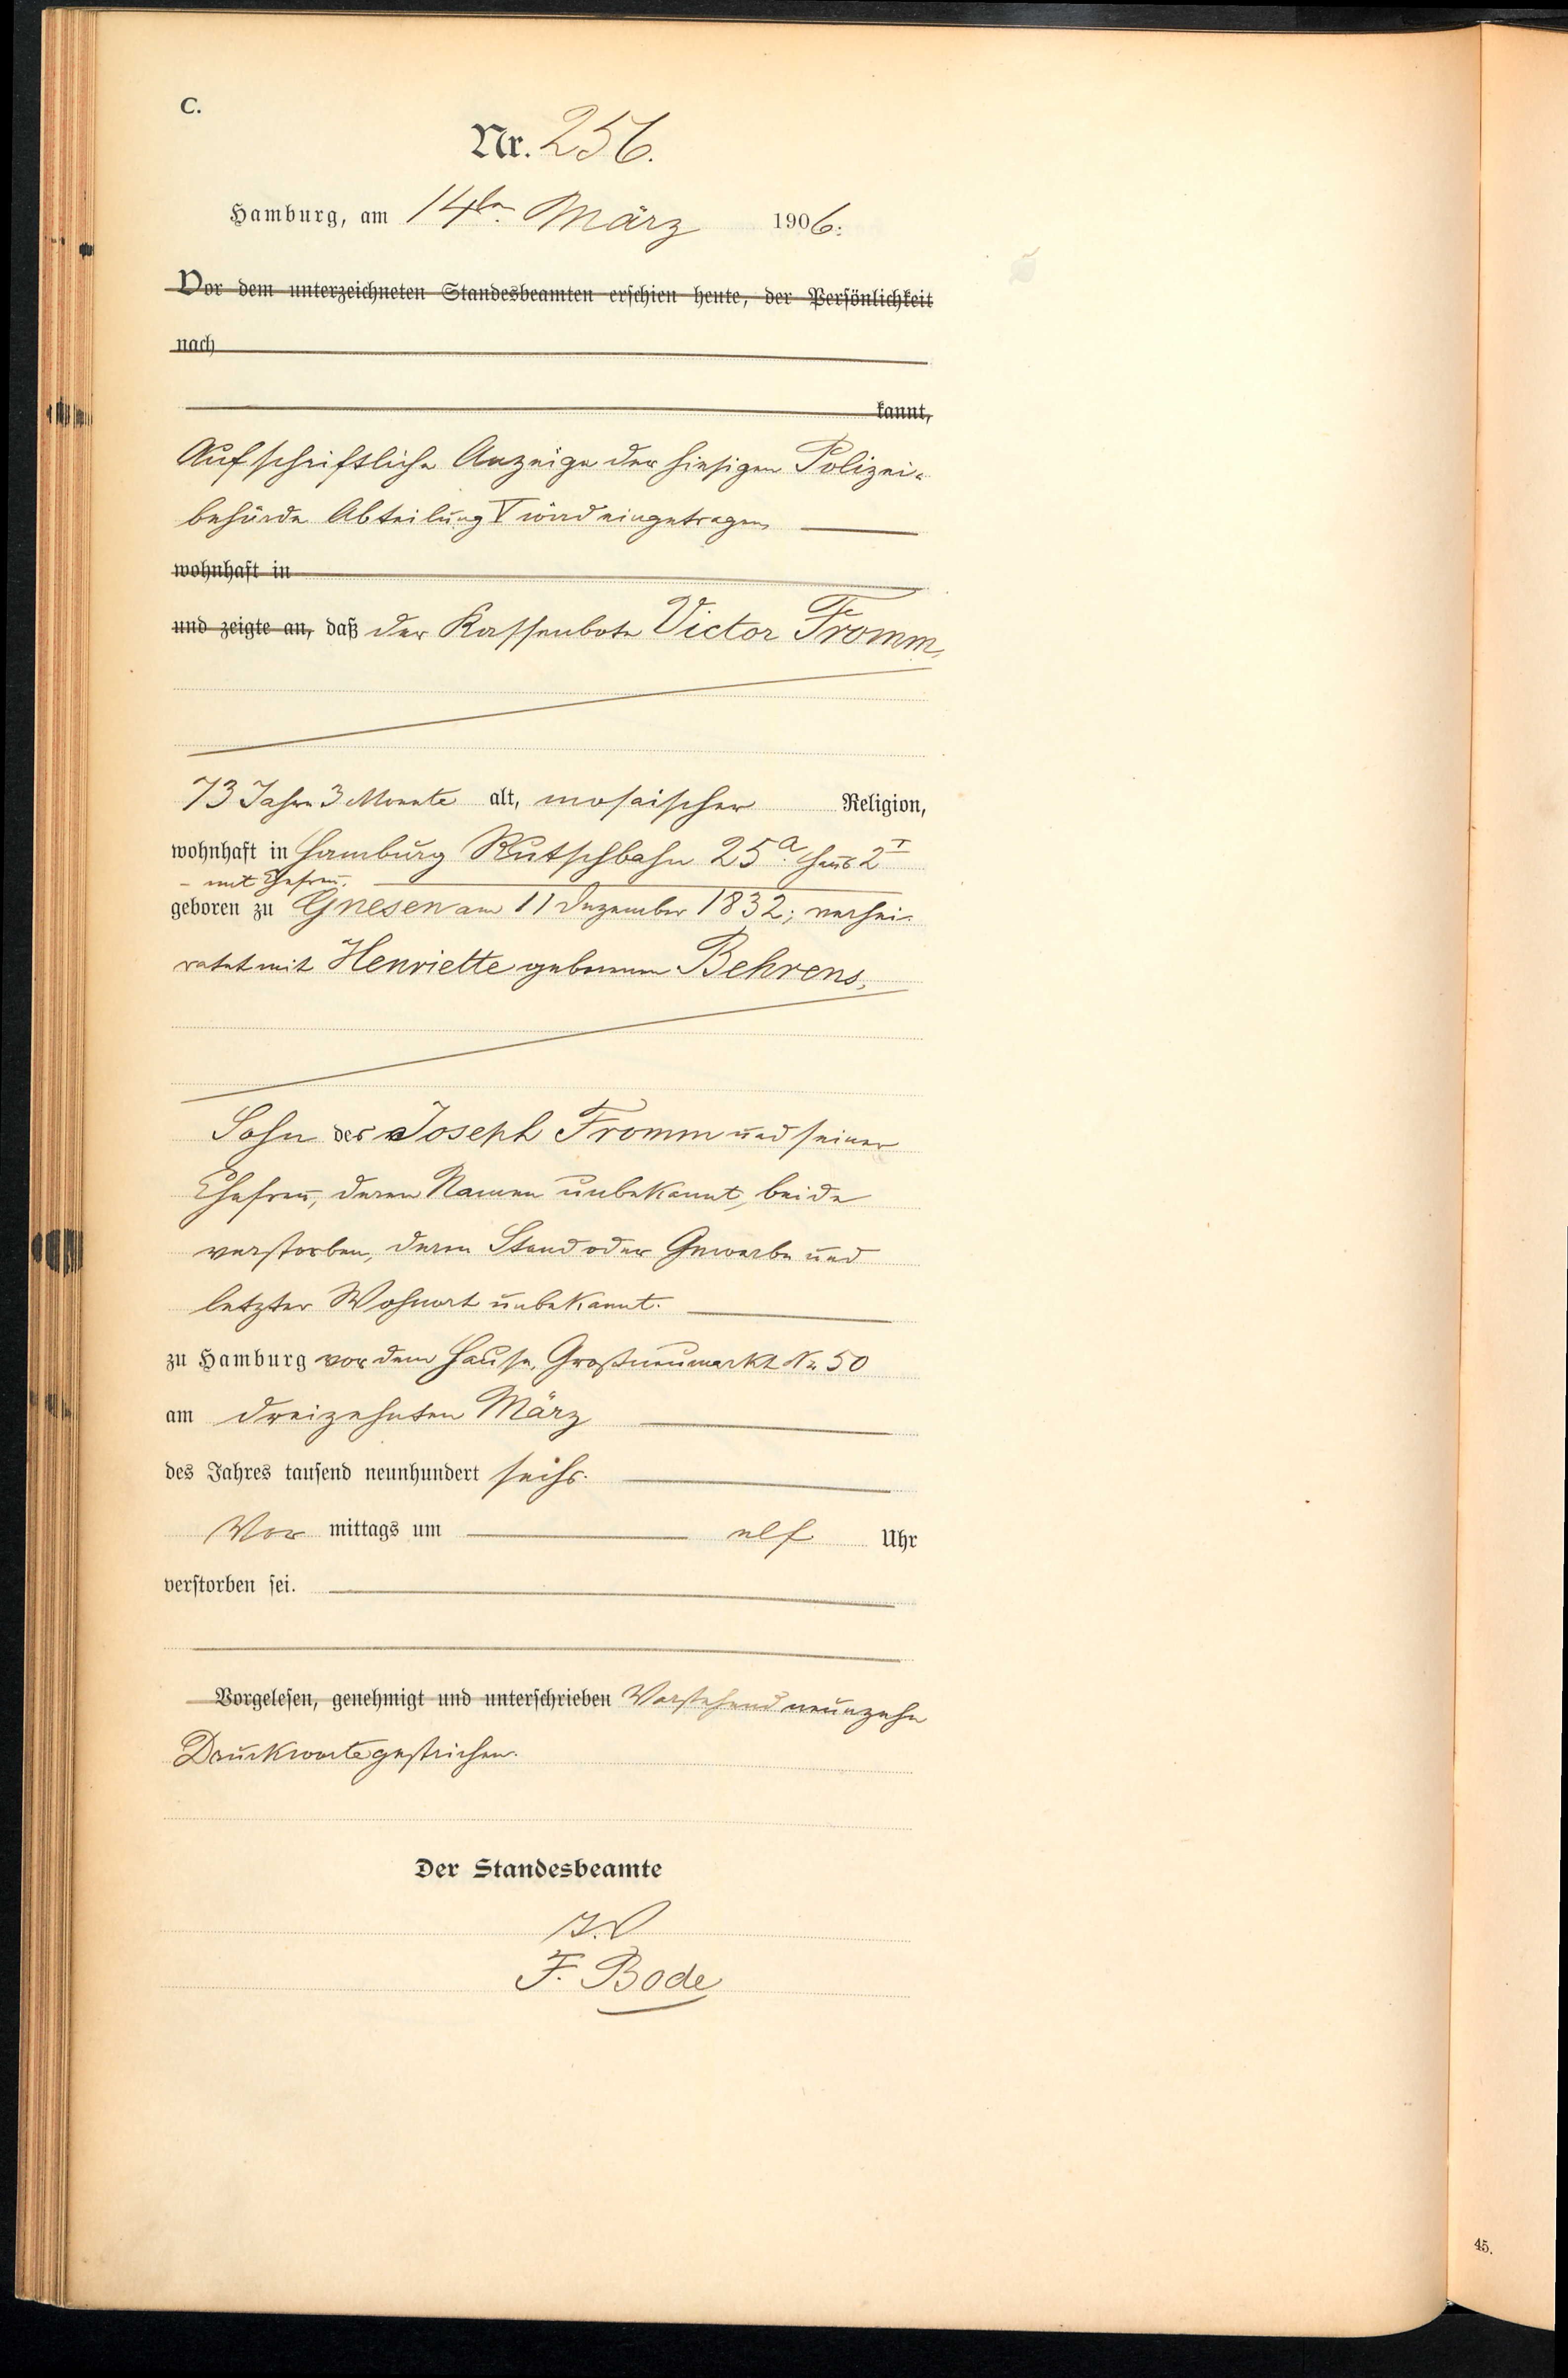 C.
Nr. 256.
Hamburg, am 14ten März 1906.
Vor dem unterzeichneten Standesbeamten erschien heute, der Persönlichkeit
nach
kannt,
Auf schriftliche Anzeige der hiesigen Polizei-
behörde Abteilung V wird eingetragen,
wohnhaft in
und zeigte an, daß der Kassenbote Victor Fromm,
73 Jahre 3 Monate alt, mosaischer Religion,
wohnhaft in Hamburg Rutschbahn 25a. Haus 2 I
- mit Ehefrau.
geboren zu Gnesen am 11 Dezember 1832; verhei-
ratet mit Henriette geborenen Behrens,
Sohn des Joseph Fromm und seiner
Ehefrau, deren Namen unbekannt, beide
verstorben, deren Stand oder Gewerbe und
letzter Wohnort unbekannt.
zu Hamburg vor dem Hause, Großneumarkt No 50
am dreizehnten März
des Jahres tausend neunhundert sechs
Vor mittags um elf Uhr
verstorben sei.
Vorgelesen, genehmigt und unterschrieben Vorstehend neunzehn
Druckworte gestrichen.
Der Standesbeamte
I.V
F. Bode
45.